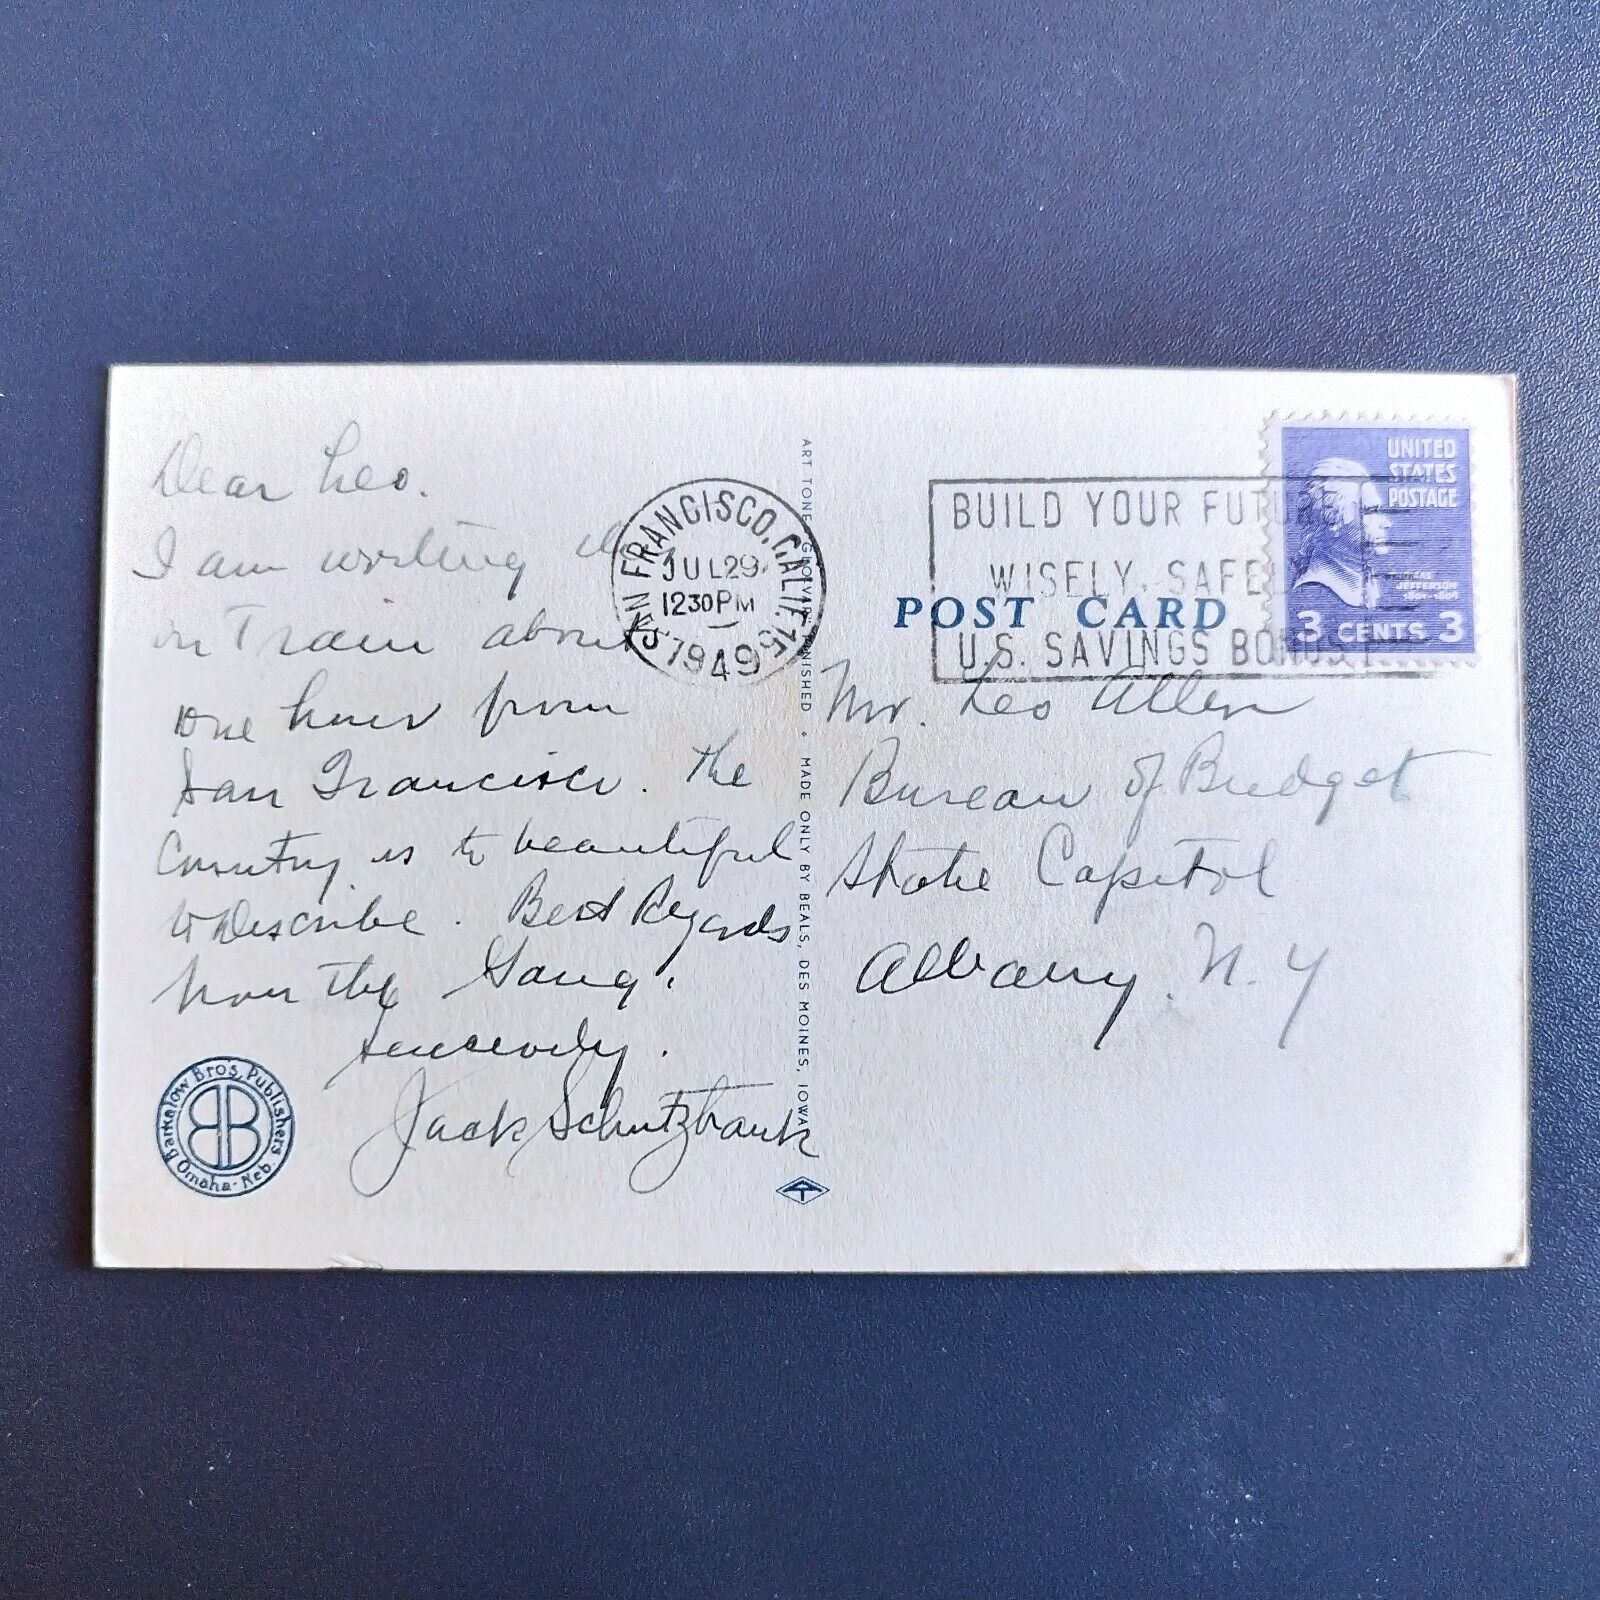 Dear Leo.
I am writing this
on Train about
one hour from
San Francisco. The
Country is to beautiful
to Describe. Best Regards
from the Gang.
Sincerely.
Jack Schutzbank
Barkalow Bros, Publishers
Omaha-Neb.
BB
SAN FRANCISCO, CALIF. 15
JUL 29
12 30 PM
1949
ART TONE "GLO-VAR" FINISHED • MADE ONLY BY BEALS, DES MOINES, IOWA
BUILD YOUR FUTURE
WISELY, SAFELY
U.S. SAVINGS BONDS
UNITED
STATES
POSTAGE
JEFFERSON
1801-1809
3 CENTS 3
POST CARD
Mr. Leo Allen
Bureau of Budget
State Capitol
Albany, N.Y